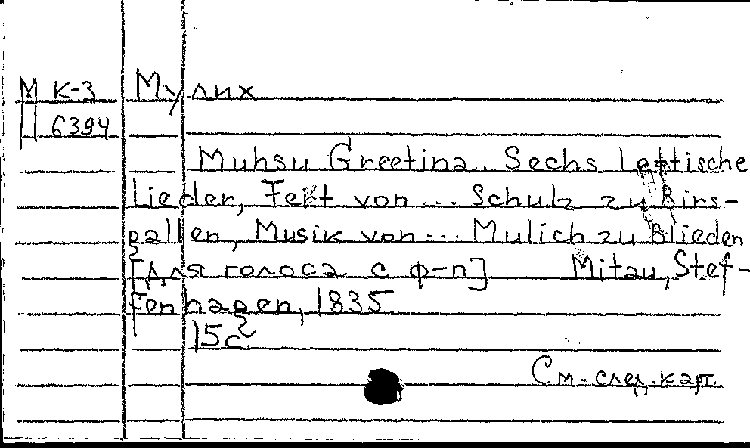 М К-3 Мулих
П 6394
Muhsu Greetina. Sechs Lettische
Lieder, Text von... Schulz zu Birs-
gallen, Musik von... Mulich zu Blieden
[Для голоса с ф-п] Mitau, Stef-
fenhagen, 1835
15с
См. след. карт.